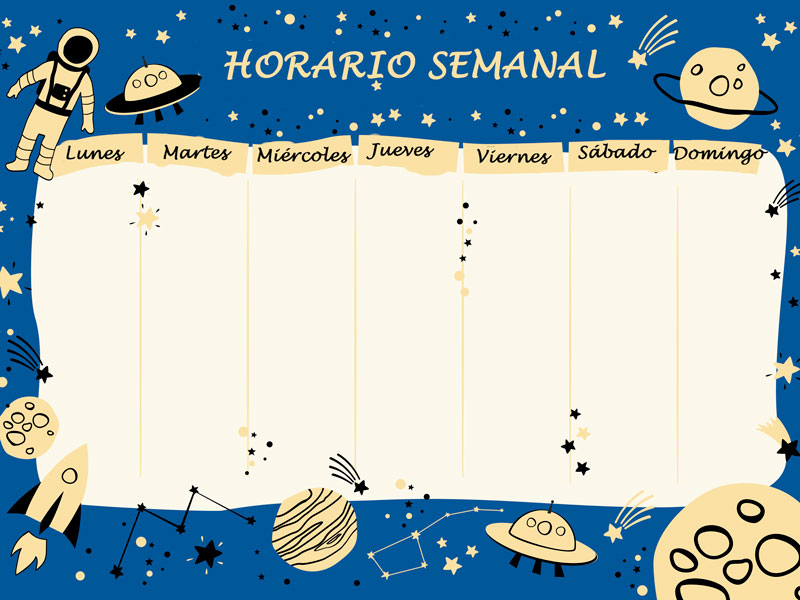 HORARIO SEMANAL
Lunes Martes Miércoles Jueves Viernes Sábado Domingo